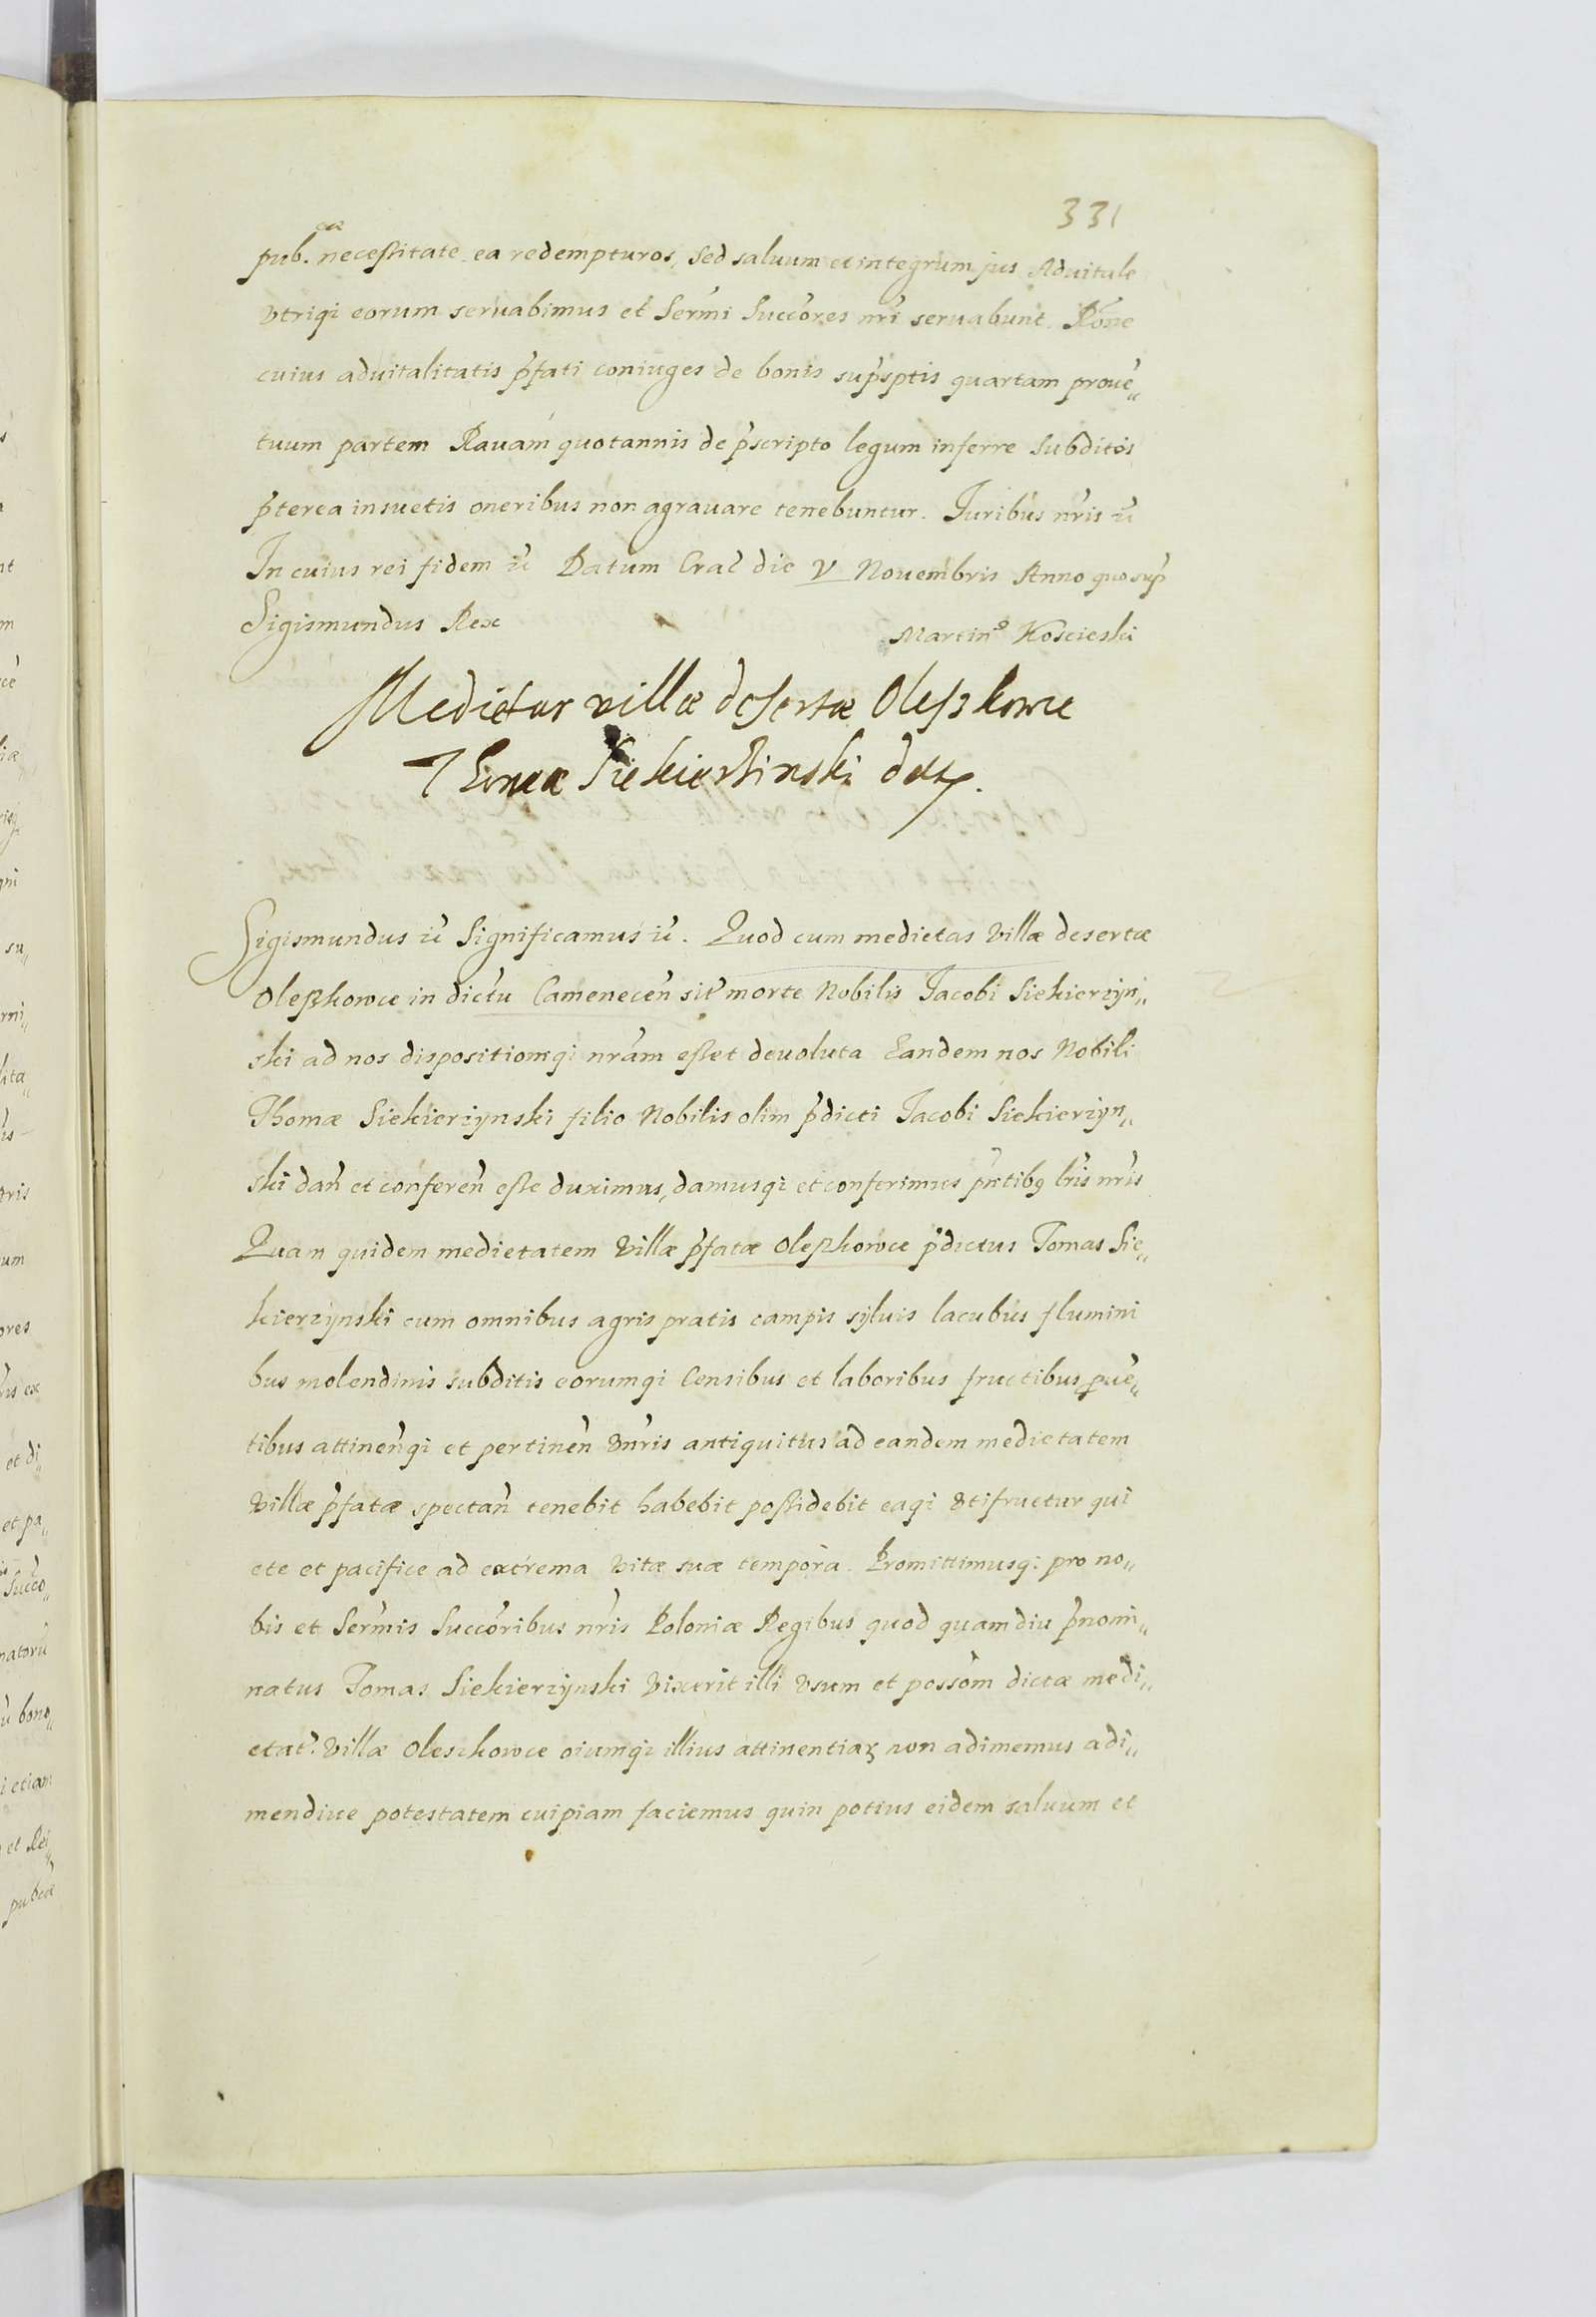 331
pub.ca necessitate ea redempturos, Sed saluum et integrum jus Aduitale
Vtriqi eorum seruabimus et Sermi Succores nri seruabunt. Rone
cuius aduitalitatis pfati coniuges de bonis supsptis quartam proue„
tuum partem Rauam quotannis de pscripto legum inferre Subditos
pterea insuetis oneribus non agrauare tenebuntur. Juribus nris ic
In cuius rei fidem ic Datum Crac die V Nouembris Anno quo sup
Sigismundus Rex
Martinus Kościeski
Medietas villæ desertæ Oleszkowce
Thomæ Siekierzinski datr.
Sigismundus ic Significamus ic. Quod cum medietas Villæ desertæ
Oleszkowce in dictu Camenecen sit morte Nobilis Jacobi Siekierzyn„
ski ad nos dispositionqi nram esset deuoluta Eandem nos Nobili
Thomæ Siekierzynski filio Nobilis olim pdicti Jacobi Siekierzyn„
ski dan et conferen esse duximus, damusqi et conferimus pntibq lris nris
Quam quidem medietatem Villæ pfatæ Oleszkowce pdictus Tomas Sie„
kierzynski cum omnibus agris pratis campis syluis lacubus flumini
bus molendinis subditis eorumqi Censibus et laboribus fructibus proue„
tibus attinenqi et pertinen Vnris antiquitus ad eandem medietatem
Villæ pfatæ spectan tenebit habebit possidebit eaqi Vtifruetur qui
ete et pacifice ad extrema Vitæ suæ tempora. Promittimusqi pro no„
bis et Sermis Succoribus nris Poloniæ Regibus quod quamdiu pnomi„
natus Tomas Siekierzynski Vixerit illi Vsum et possom dictæ medi„
etat. Villæ Oleszkowce oiumqi illius attinentiaꝝ non adimemus adi„
mendiue potestatem cuipiam faciemus quin potius eidem saluum et